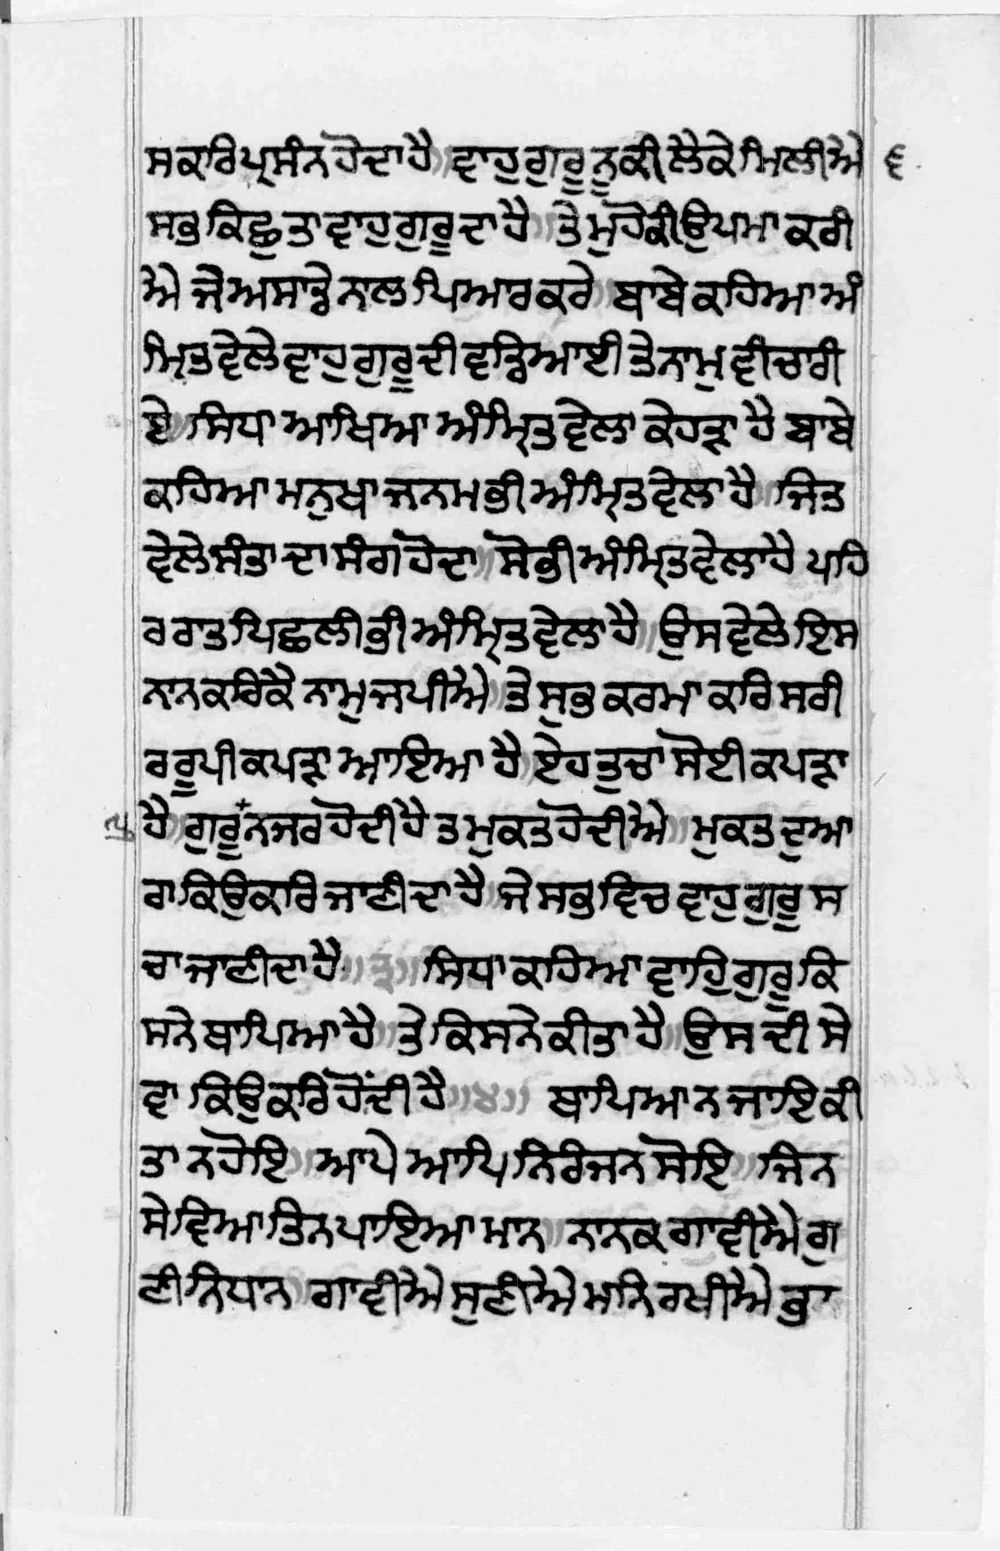 ਸ ਕਰਿ ਪ੍ਰਸੰਨ ਹੋਦਾ ਹੈ ॥ ਵਾਹੁ ਗੁਰੂ ਨੂ ਕੀ ਲੈਕੇ ਮਿਲੀਐ ੬
ਸਭੁ ਕਿਛੁ ਤਾ ਵਾਹੁ ਗੁਰੂ ਦਾ ਹੈ ॥ ਤੇ ਮੁਹੋ ਕੀ ਉਪਮਾ ਕਰੀ
ਐ ਜੋ ਅਸਾਡੇ ਨਾਲ ਪਿਆਰ ਕਰੇ ॥ ਬਾਬੇ ਕਹਿਆ ਅੰ
ਮ੍ਰਿਤ ਵੇਲੇ ਵਾਹੁ ਗੁਰੂ ਦੀ ਵਡਿਆਈ ਤੇ ਨਾਮੁ ਵੀਚਾਰੀ
ਏ ॥ ਸਿਧਾ ਆਖਿਆ ਅੰਮ੍ਰਿਤ ਵੇਲਾ ਕੇਹੜਾ ਹੈ ਬਾਬੇ
ਕਹਿਆ ਮਨੁਖਾ ਜਨਮ ਭੀ ਅੰਮ੍ਰਿਤ ਵੇਲਾ ਹੈ ॥ ਜਿਤ
ਵੇਲੇ ਸੰਤਾ ਦਾ ਸੰਗ ਹੋਦਾ ॥ ਸੋ ਭੀ ਅੰਮ੍ਰਿਤ ਵੇਲਾ ਹੈ ਪਹਿ
ਰ ਰਾਤ ਪਿਛਲੀ ਭੀ ਅੰਮ੍ਰਿਤ ਵੇਲਾ ਹੈ ॥ ਉਸ ਵੇਲੇ ਇਸ
ਨਾਨ ਕਰਿਕੈ ਨਾਮੁ ਜਪੀਐ ॥ ਤੇ ਸੁਭ ਕਰਮਾ ਕਰਿ ਸਰੀ
ਰ ਰੂਪੀ ਕਪੜਾ ਆਇਆ ਹੈ ॥ ਏਹ ਤੁਚਾ ਸੋਈ ਕਪੜਾ
ਹੈ ॥ ਗੁਰੂ ਨਜਰ ਹੋਦੀ ਹੈ ਤ ਮੁਕਤ ਹੋਦੀਐ ॥ ਮੁਕਤ ਦੁਆ
ਰਾ ਕਿਉ ਕਰਿ ਜਾਣੀਦਾ ਹੈ ॥ ਜੇ ਸਭੁ ਵਿਚ ਵਾਹੁ ਗੁਰੂ ਸ
ਚਾ ਜਾਣੀਦਾ ਹੈ ॥੩॥ ਸਿਧਾ ਕਹਿਆ ਵਾਹਿਗੁਰੂ ਕਿ
ਸਨੇ ਥਾਪਿਆ ਹੈ ॥ ਤੇ ਕਿਸਨੇ ਕੀਤਾ ਹੈ ॥ ਉਸ ਦੀ ਸੇ
ਵਾ ਕਿਉਕਰਿ ਹੋਂਦੀ ਹੈ ॥੪॥ ਥਾਪਿਆ ਨ ਜਾਇ ਕੀ
ਤਾ ਨ ਹੋਇ ॥ ਆਪੇ ਆਪਿ ਨਿਰੰਜਨ ਸੋਇ ॥ ਜਿਨ
ਸੇਵਿਆ ਤਿਨ ਪਾਇਆ ਮਾਨ ॥ ਨਾਨਕ ਗਾਵੀਐ ਗੁ
ਣੀ ਨਿਧਾਨ ॥ ਗਾਵੀਐ ਸੁਣੀਐ ਮਨਿ ਰਖੀਐ ਭਾ